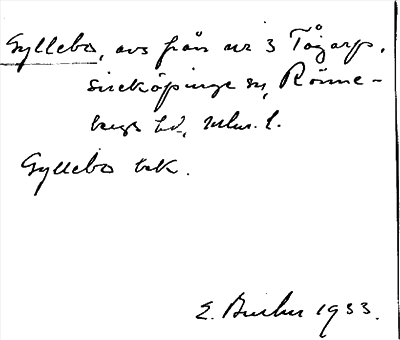 Gyllebo, avs från nr 3 Tågarp,
Sireköpinge sn, Rönne-
bergs hd, Mlm. l.
Gyllebo bek.
E. Buhr 1933.